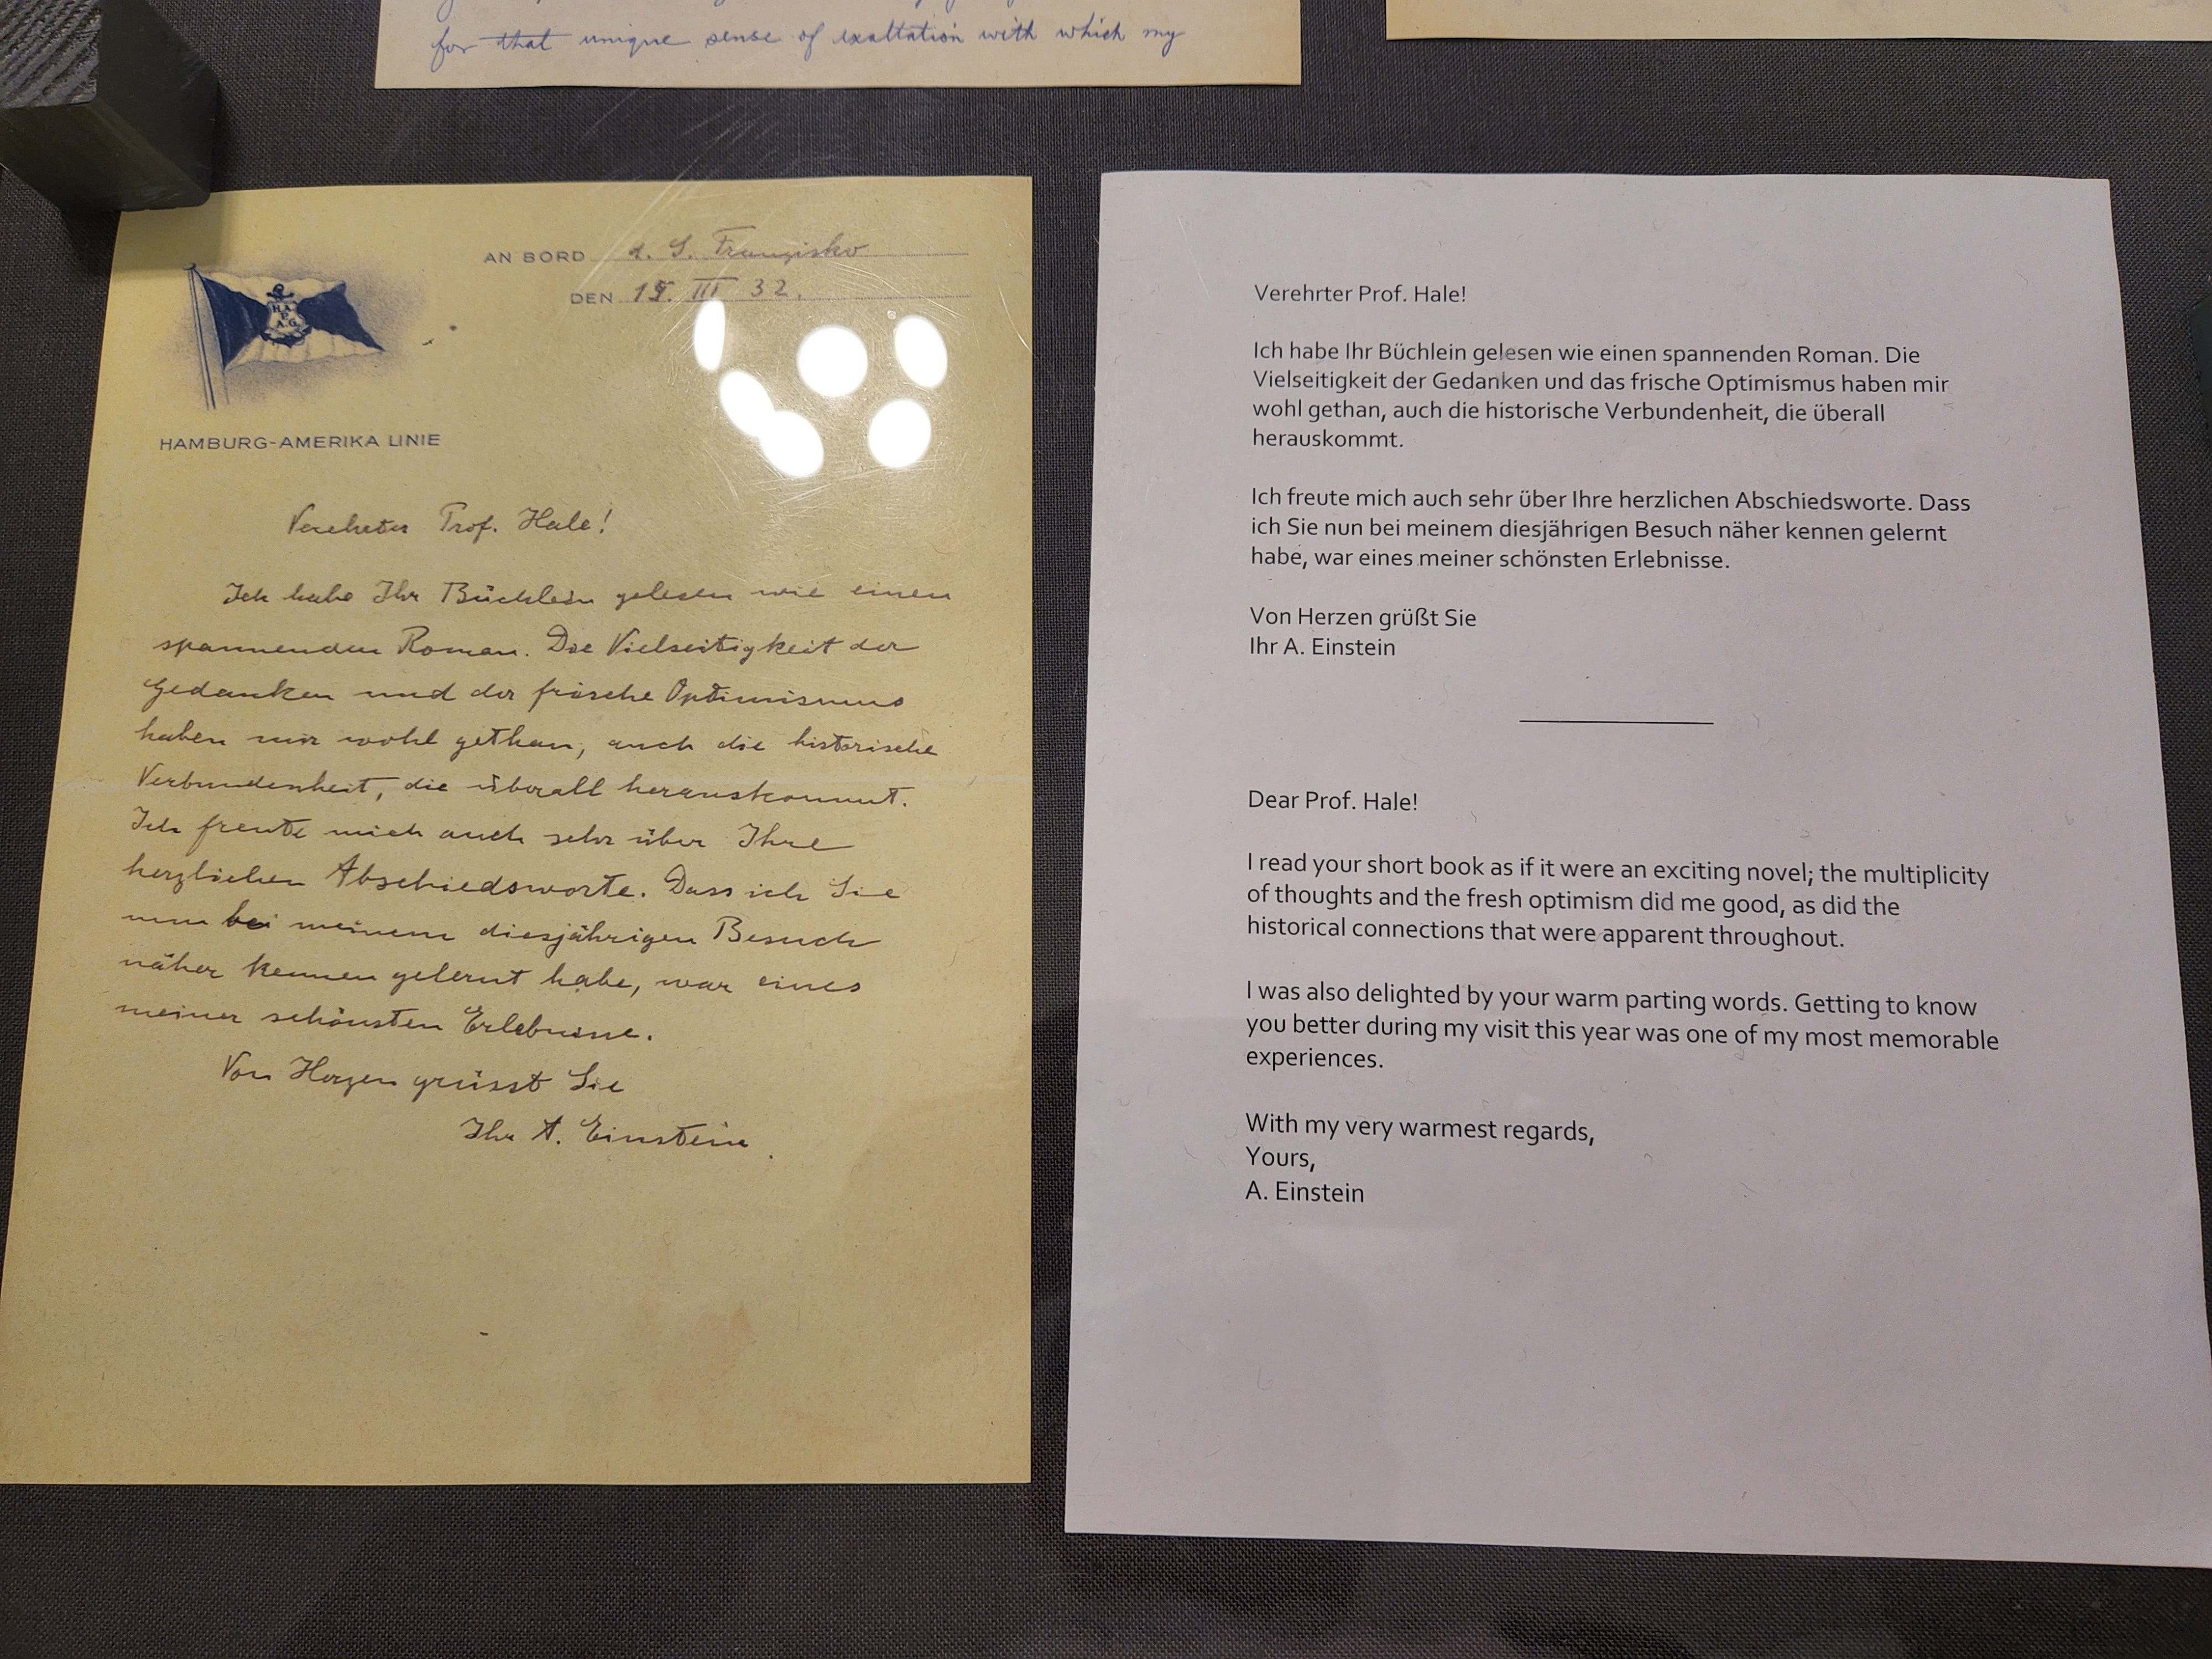 for that unique sense of exaltation with which my
AN BORD d. S. Franzisko
DEN 15. III 32.
HAPAG
HAMBURG-AMERIKA LINIE
Verehrter Prof. Hale!
Ich habe Ihr Büchlein gelesen wie einen
spannenden Roman. Die Vielseitigkeit der
Gedanken und der frische Optimismus
haben mir wohl gethan, auch die historische
Verbundenheit, die überall herauskommt.
Ich freute mich auch sehr über Ihre
herzlichen Abschiedsworte. Dass ich Sie
nun bei meinem diesjährigen Besuch
näher kennen gelernt habe, war eines
meiner schönsten Erlebnisse.
Von Herzen grüsst Sie
Ihr A. Einstein.
Verehrter Prof. Hale!
Ich habe Ihr Büchlein gelesen wie einen spannenden Roman. Die
Vielseitigkeit der Gedanken und das frische Optimismus haben mir
wohl gethan, auch die historische Verbundenheit, die überall
herauskommt.
Ich freute mich auch sehr über Ihre herzlichen Abschiedsworte. Dass
ich Sie nun bei meinem diesjährigen Besuch näher kennen gelernt
habe, war eines meiner schönsten Erlebnisse.
Von Herzen grüßt Sie
Ihr A. Einstein
Dear Prof. Hale!
I read your short book as if it were an exciting novel; the multiplicity
of thoughts and the fresh optimism did me good, as did the
historical connections that were apparent throughout.
I was also delighted by your warm parting words. Getting to know
you better during my visit this year was one of my most memorable
experiences.
With my very warmest regards,
Yours,
A. Einstein